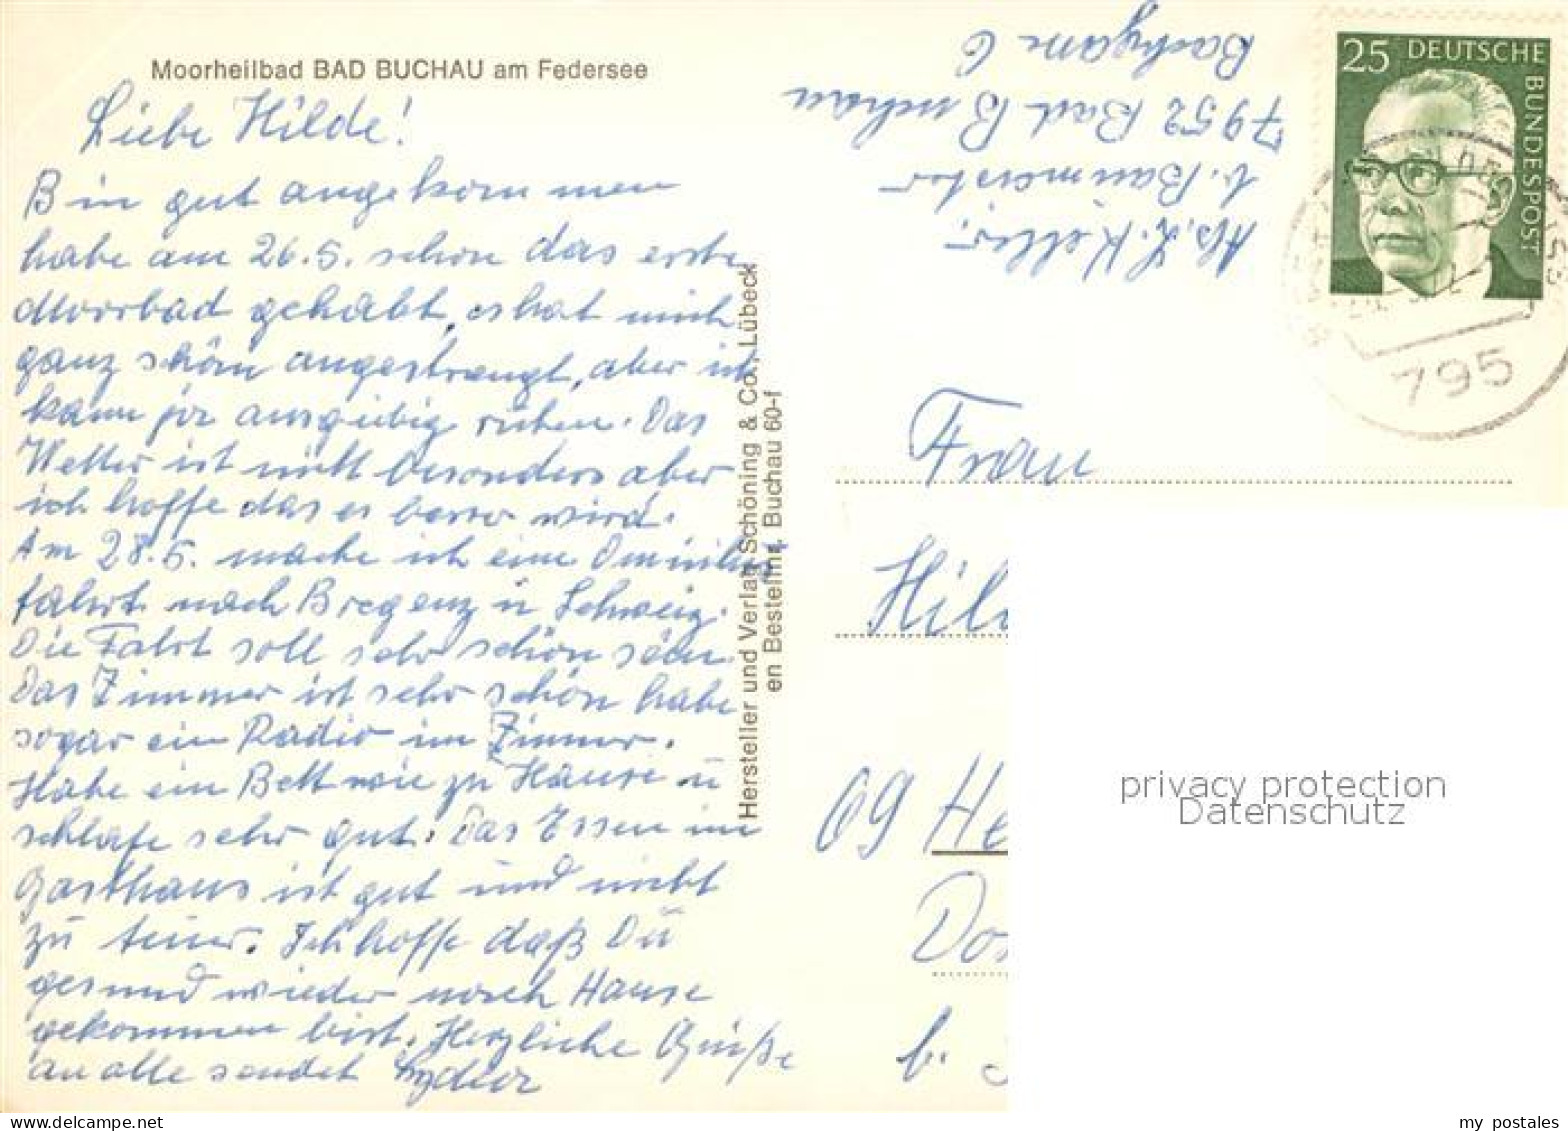 Moorheilbad BAD BUCHAU am Federsee
Liebe Hilde!
Bin gut angekommen
habe am 26.5. schon das erste
Moorbad gehabt, es hat mich
ganz schön angestrengt, aber ich
kann ja ausgiebig ruhen. Das
Wetter ist nicht besonders aber
ich hoffe das es besser wird.
Am 28.5. mache ich eine Omnibus
fahrt nach Bregenz u Schweiz.
Die Fahrt soll sehr schön sein.
Das Zimmer ist sehr schön habe
sogar ein Radio im Zimmer.
Habe ein Bett wie zu Hause u
schlafe sehr gut. Das Essen im
Gasthaus ist gut und nicht
zu teuer. Ich hoffe daß Du
gesund wieder nach Hause
gekommen bist. Herzliche Grüße
an alle sendet Lydia
Hersteller und Verlag Schöning & Co., Lübeck
en Bestellnr. Buchau 60-f
Abs. L. Keller
b. Baumeister
7952 Bad Buchau
Bachgasse 6
25 DEUTSCHE
BUNDESPOST
795
Frau
Hil
69 He
Dos
b.
privacy protection
Datenschutz
my postales